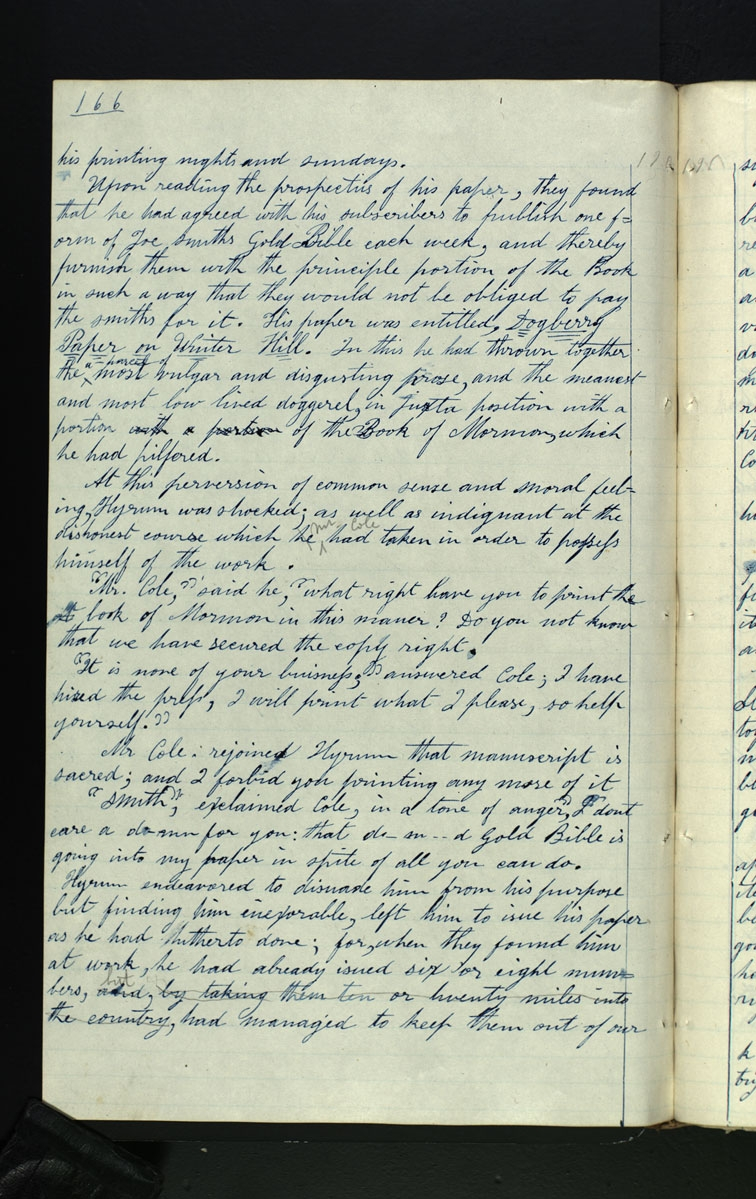 166
his printing nights and sundays.
Upon reading the prospectus of his paper, they found
that he had agreed with his subscribers to publish one f=
orm of Joe smiths Gold Bible each week, and thereby
furnish them with the principle portion of the Book
in such a way that they would not be obliged to pay
the smiths for it. His paper was entitled, Dogberry
Paper on Winter Hill. In this he had thrown together
a parcel of
the most vulgar and disgusting prose, and the meanest
and most low lived doggerel, in Juxta position with a
portion with a portion of the Book of Mormon, which
he had pilfered.
At this perversion of common sense and moral feel-
ing, Hyrum was shocked; as well as indignant at the
Mr. Cole
dishonest course which he had taken in order to possess
himself of the work.
"Mr. Cole," said he, "what right have you to print the
book of Mormon in this maner? Do you not know
that we have secured the copy right.
"It is none of your buisness," answered Cole; I have
hired the press, I will print what I please, so help
yourself."
Mr Cole: rejoined Hyrum that manuscript is
sacred; and I forbid you printing any more of it
"smith", exclaimed Cole, in a tone of anger, "I dont
care a da-mn for you: that da-m--d Gold Bible is
going into my paper in spite of all you can do.
Hyrum endeavored to disuade him from his purpose
but finding him inexorable, left him to isue his paper
as he had hitherto done; for, when they found him
at work, he had already isued six or eight num=
but
bers, and, by taking them ten or twenty miles into
the country, had managed to keep them out of our